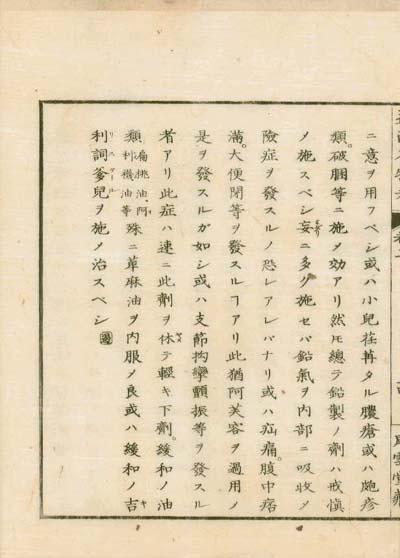 ニ意ヲ用フベシ或ハ小兒荏苒タル膿瘡或ハ皰疹
類破膕等ニ施メ効アリ然𪜈總テ鉛製ノ劑ハ戒愼
メ施スベシ妄ニ多ク施セバ鉛氣ヲ内部ニ吸收メ
險症ヲ發スルノ恐レアレバナリ或ハ疝痛。腹中痞
滿。大便閉等ヲ發スルヿアリ此猶阿芙容ヲ過用ノ
是ヲ發スルガ如シ或ハ支節拘攣顫振等ヲ發スル
者アリ此症ハ速ニ此劑ヲ休テ輕キ下劑。緩和ノ油
類扁桃油阿利襪油等殊ニ萆麻油ヲ内服メ良或ハ緩和ノ吉
利詞爹兒ヲ施メ治スベシ